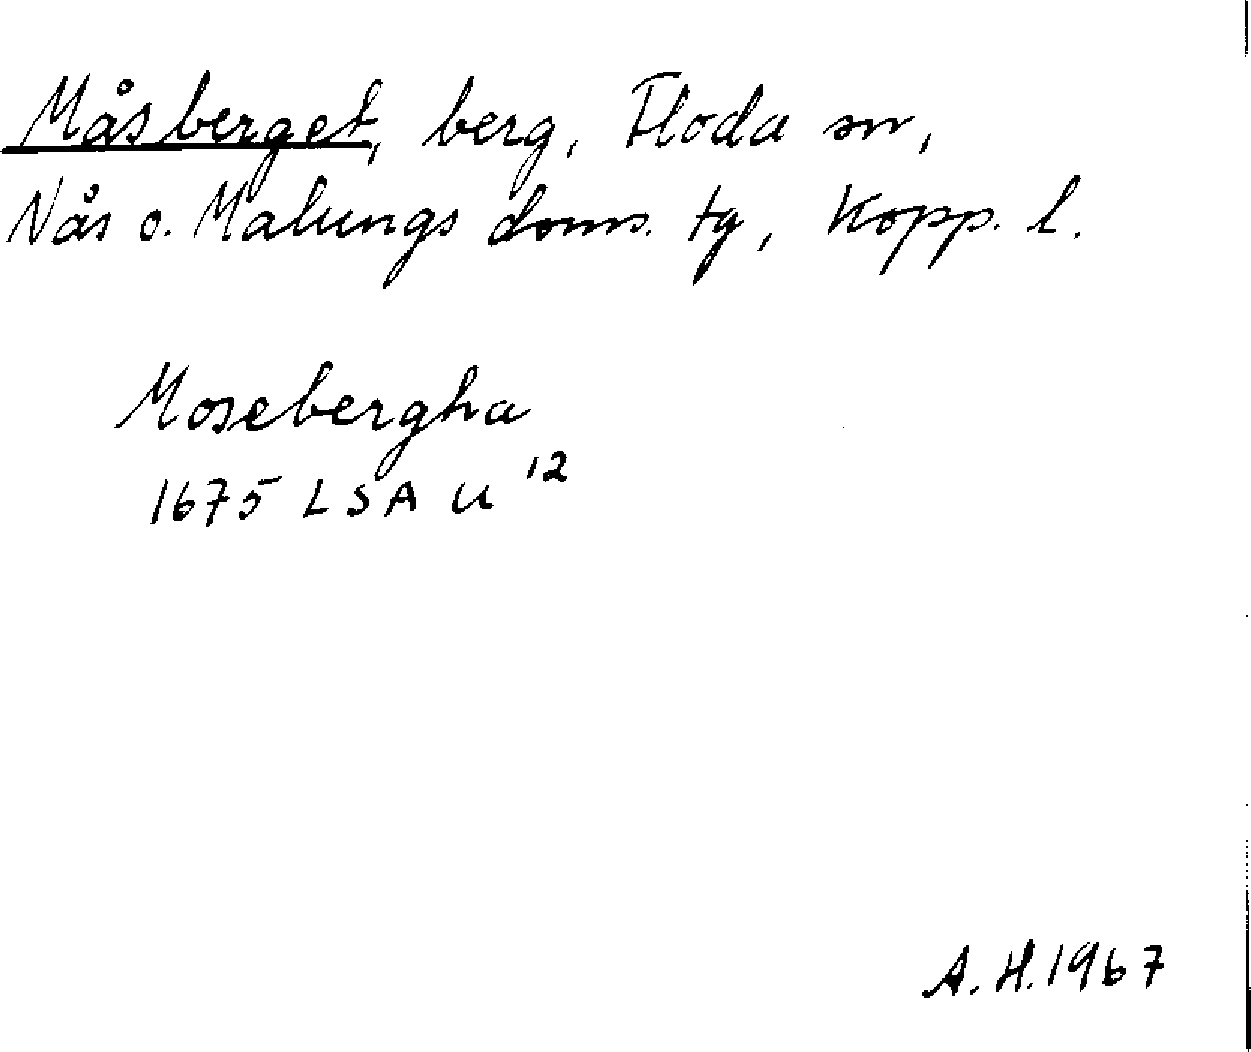 Måsberget, berg, Floda sn,
Nås o. Malungs doms. tg, Kopp. l.
Mosebergha
1675 LSA U 12
A. H. 1967